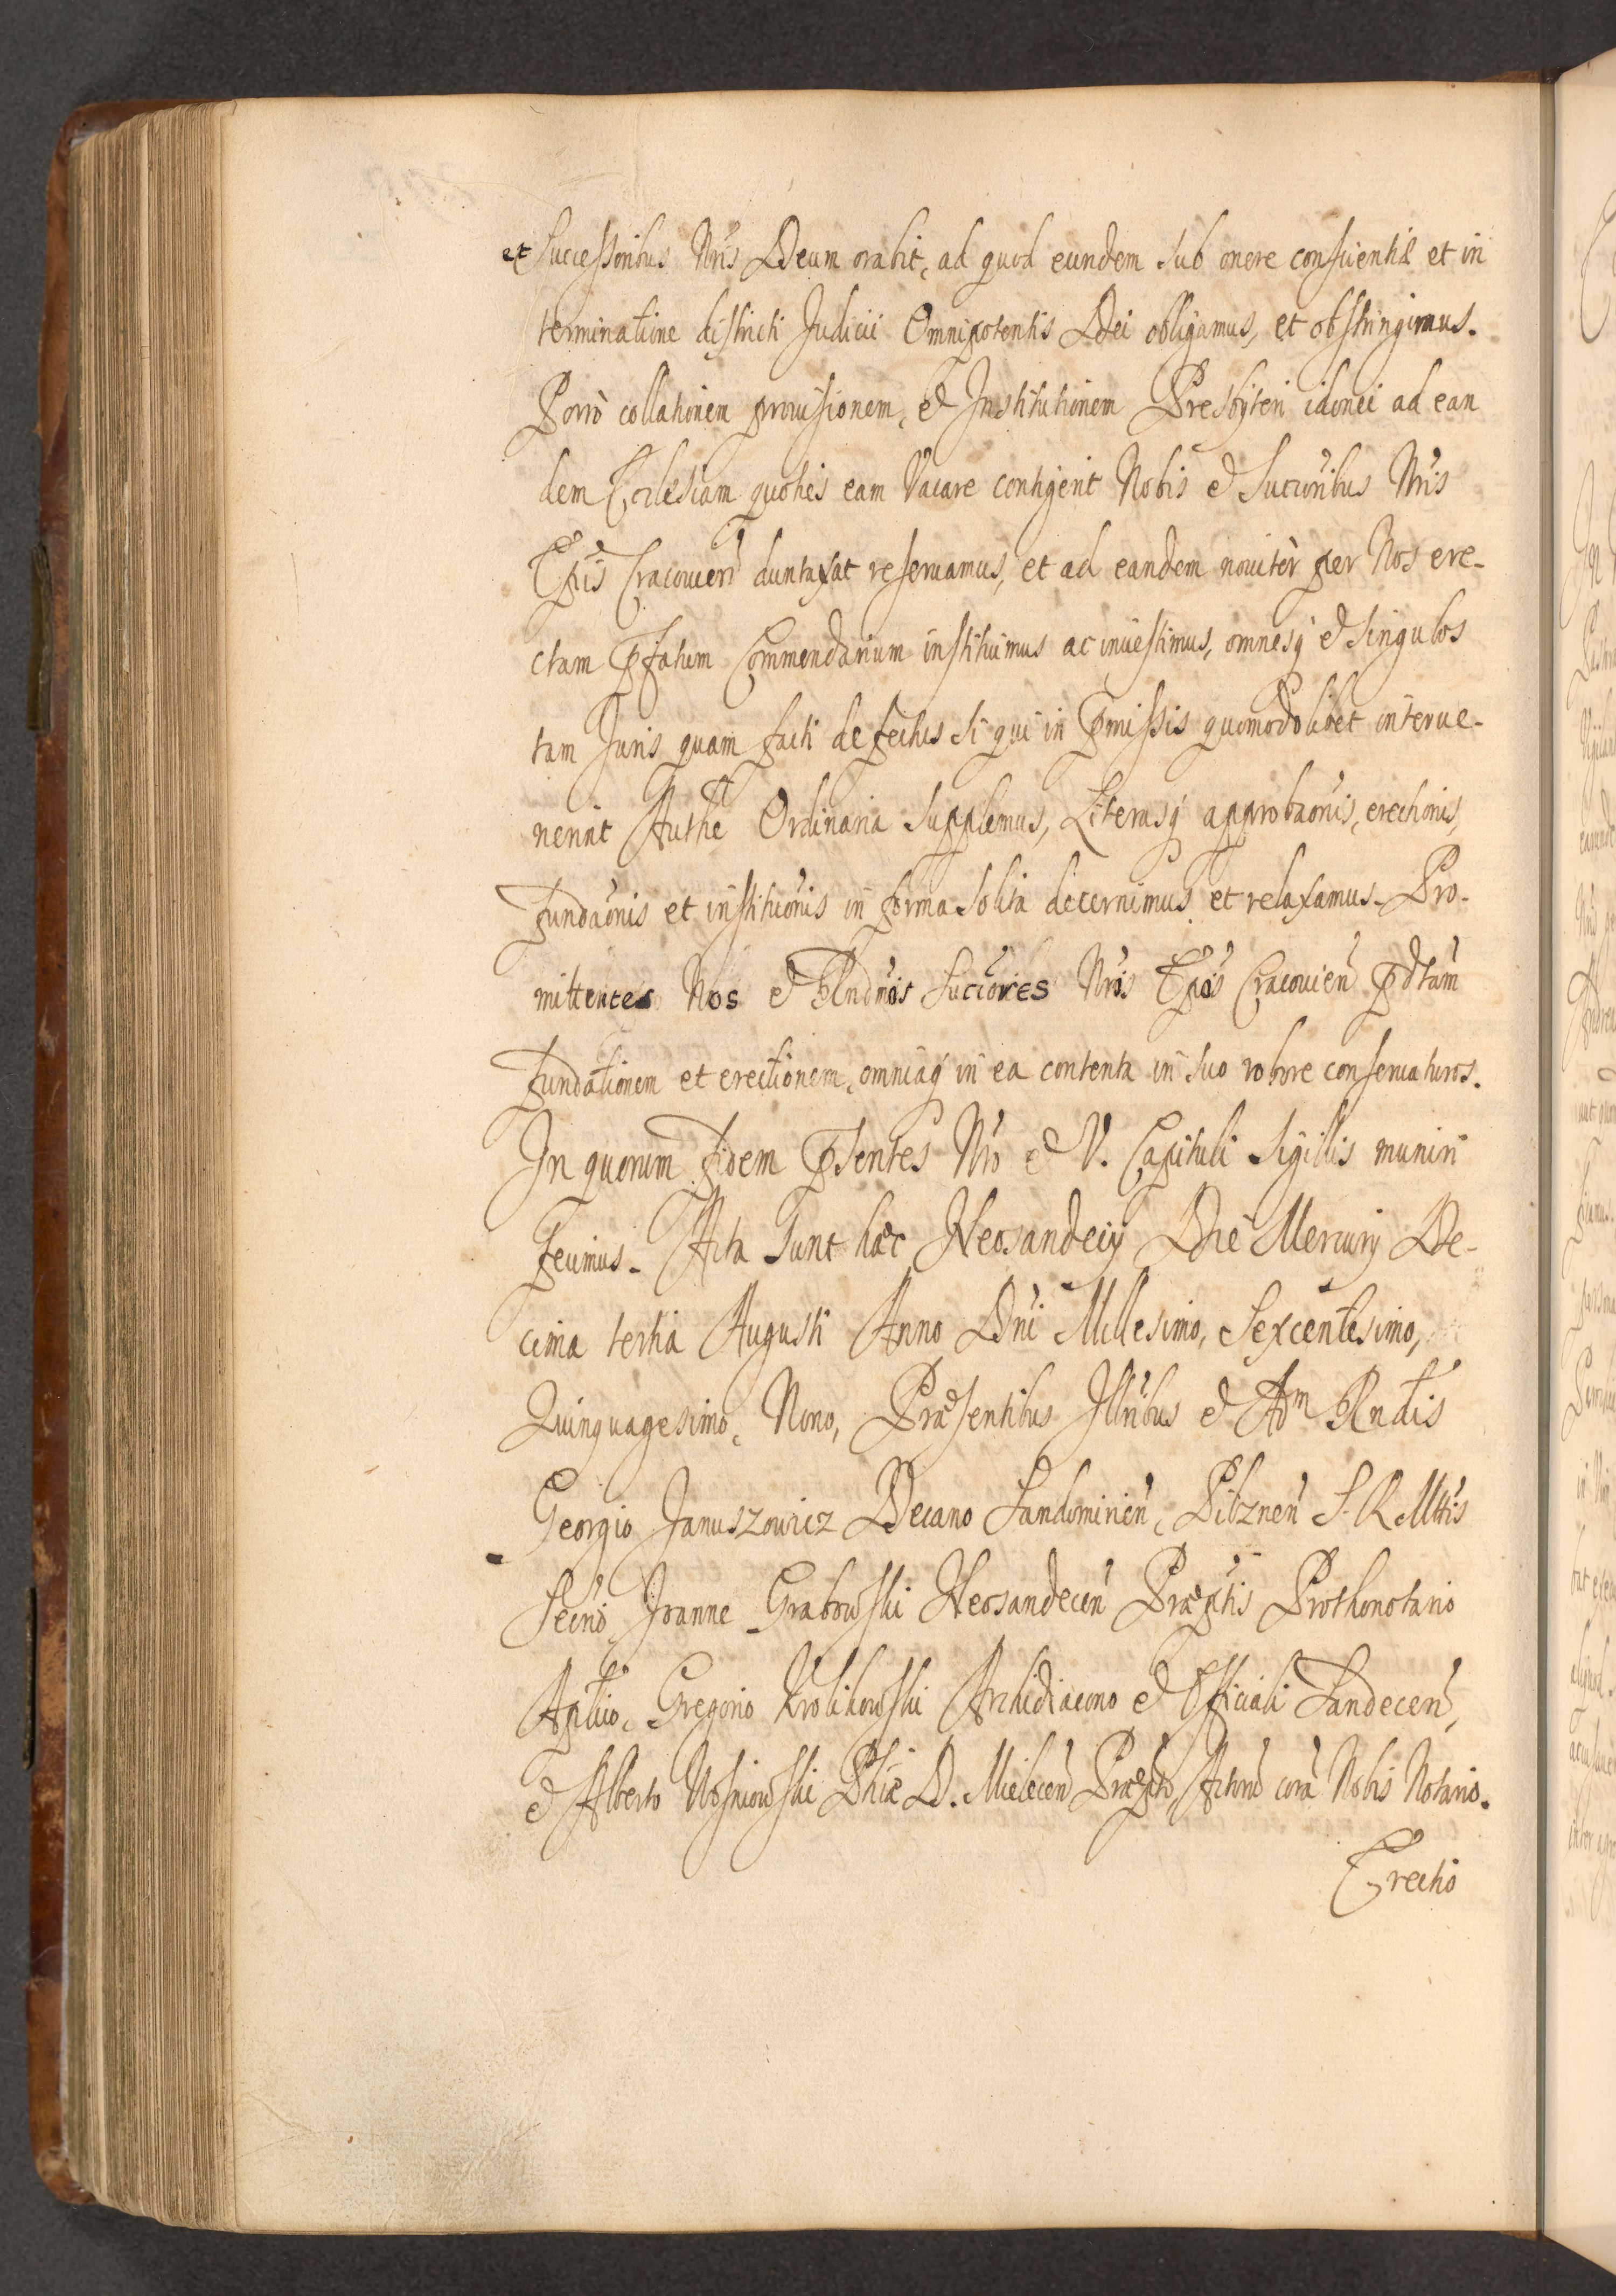 et Successoribus Nris Deum orabit, ad quod eundem sub onere conscientiæ et in
terminatione districti Judicii Omnipotentis Dei obligamus, et obstringimus.
Porrò collationem provisionem, et Institutionem Presbyteri idonei ad ean
dem Ecclesiam quoties eam Vacare contigerit Nobis et Sucribus Nris
Epis Cracovien duntaxat reservamus, et ad eandem noviter per Nos ere-
ctam pfatum Commendarium instituimus ac investimus, omnesq et singulos
tam Juris quam facti defectus si qui in pmissis quomodolibet interve-
nerint Authe Ordinaria supplemus, Literasq approbaonis, erectionis,
fundaonis et instituonis in forma solita decernimus et relaxamus. Pro-
mittentes Nos et Rndmos Succores Nros Epos Cracovien pdtam
fundationem et erectionem, omniaq in ea contenta in suo robore conservaturos.
In quorum fidem psentes Nro et V. Capituli Sigillis muniri
fecimus. Acta sunt hæc Neosandeciæ Die Mercurij De-
cima tertia Augusti Anno Dni Millesimo, Sexcentesimo,
Quinquagesimo, Nono, Præsentibus Illribus et Adm Rndis
Georgio Januszowicz Decano Sandomirien, Pilznen S. R. Mttis
Secrio Joanne Grabowski Neosandecen Præptis Prothonotario
Aplico, Gregorio Krolikowski Archidiacono et Officiali Sandecen,
et Alberto Wosniowski Phiæ D. Mielecen Præpto, Actorū corā Nobis Notario.
Erectio